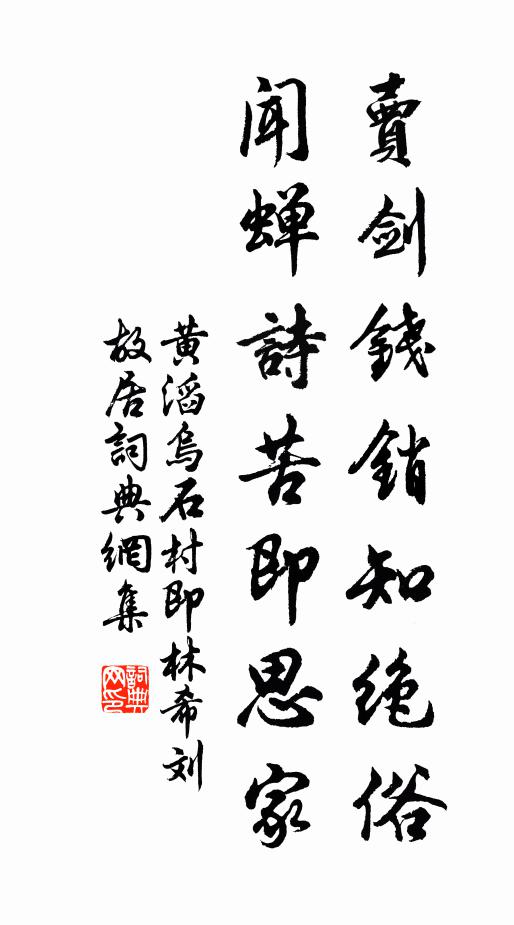 賣劍錢銷知絶俗
聞蟬詩苦即思家
黄滔烏石村即林希刘
故居詞典網集
詞典网印